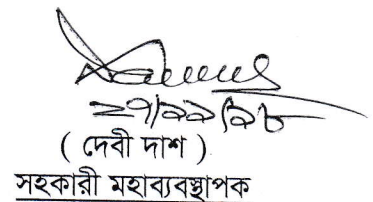 ২৭/১১/১৮
( দেবী দাশ )
সহকারী মহাব্যবস্থাপক